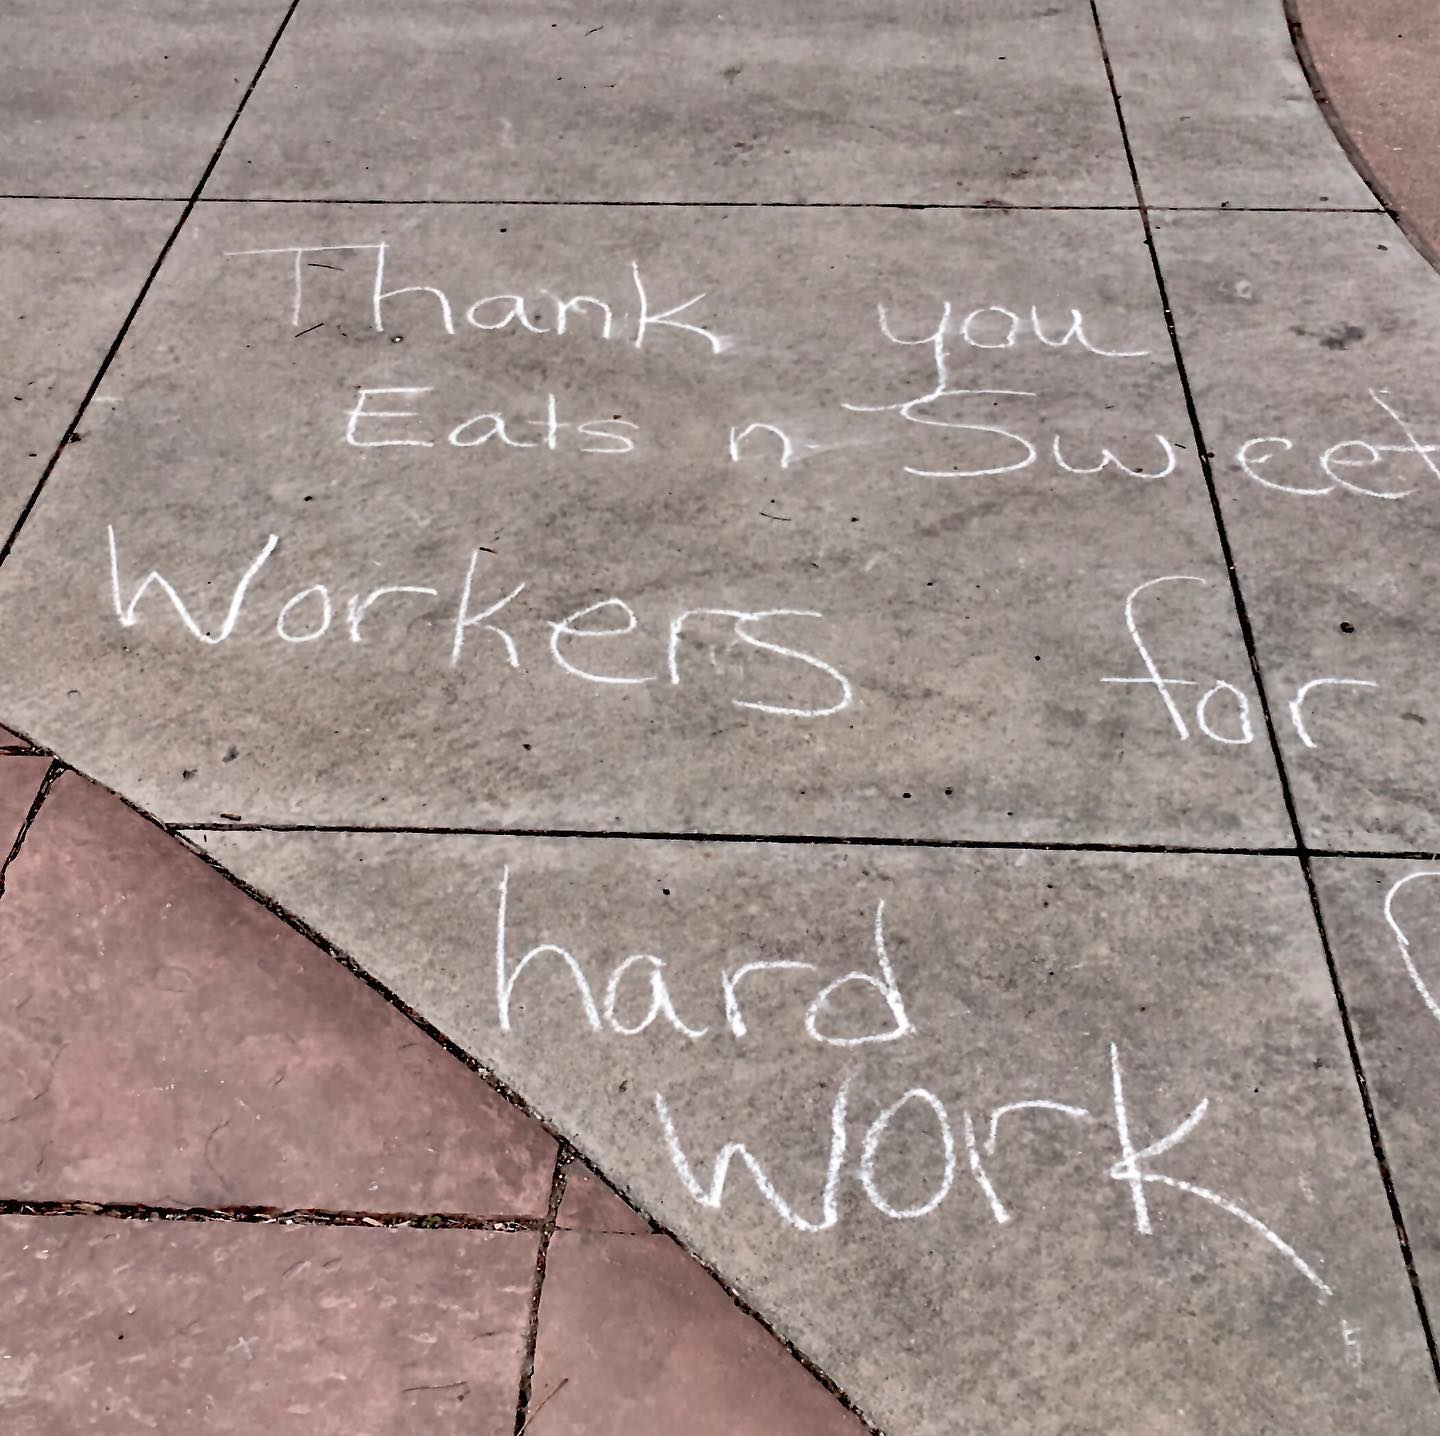 Thank you
Eats n Sweet
Workers for
hard
work